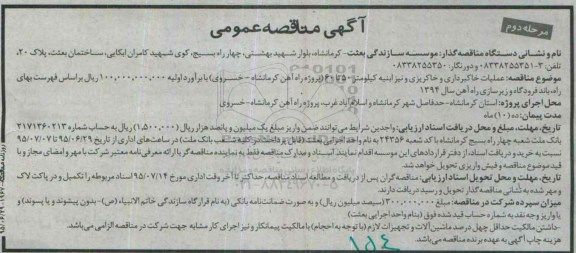 مرحله دوم
آگهی مناقصه عمومی
نام و نشانی دستگاه مناقصه گذار: موسسه سازندگی بعثت- کرمانشاه، بلوار شهید بهشتی، چهار راه بسیج، کوی شهید کامران ابکایی، ساختمان بعثت، پلاک ۲۰،
تلفن: ۳-۰۸۳۳۸۲۵۵۳۵۱ دورنگار: ۰۸۳۳۸۲۵۵۳۵۰
موضوع مناقصه: عملیات خاکبرداری و خاکریزی و نیز ابنیه کیلومتر ( پروژه راه آهن کرمانشاه - خسروی) با برآورد اولیه ۱۰۰،۰۰۰،۰۰۰،۰۰۰ ریال براساس فهرست بهای
راه، باند فرودگاه و زیرسازی راه آهن سال ۱۳۹۴
محل اجرای پروژه: استان کرمانشاه- حدفاصل شهر کرمانشاه و اسلام آباد غرب- پروژه راه آهن کرمانشاه-خسروی
مدت پیمان: ده (۱۰) ماه
تاریخ، مهلت، مبلغ و محل دریافت اسناد ارزیابی: واجدین شرایط می توانند ضمن واریز مبلغ یک میلیون و پانصد هزار ریال (۱،۵۰۰،۰۰۰) ریال به حساب شماره ۲۱۷۱۳۶۰۲۱۳
بانک ملت شعبه چهار راه بسیج کرمانشاه با کد شعبه ۲۴۳۵۶ به نام واحد اجرایی بعثت (قابل پرداخت در کلیه شعب بانک ملت) در ساعت های اداری از تاریخ ۹۵/۰۶/۲۹ تا ۹۵/۰۷/۰۷
نسبت به خرید و دریافت اسناد، از دفتر قراردادهای این موسسه اقدام نمایند اسناد و مدارک مناقصه فقط به نماینده مناقصه گر با ارائه معرفی نامه معتبر شرکت با مهر و امضای مجاز و با
قید موضوع مناقصه و فیش واریزی تحویل خواهد شد.
تاریخ، مهلت و محل تحویل اسناد ارزیابی: مناقصه گران پس از دریافت و مطالعه اسناد مناقصه، حداکثر تا آخر وقت اداری مورخ ۹۵/۰۷/۱۴ اسناد مربوطه را تکمیل و در پاکت لاک
و مهر شده به نشانی مناقصه گذار تحویل و رسید دریافت دارند.
میزان سپرده شرکت در مناقصه: مبلغ ۳۰۰،۰۰۰،۰۰۰ (سیصد میلیون ریال) و به صورت ضمانت نامه بانکی (به نام قرارگاه سازندگی خاتم الانبیاء (ص)- بدون پیشوند و یا پسوند) و
یا واریز وجه نقد به شماره حساب قید شده فوق (بنام واحد اجرایی بعثت)
-داشتن مالکیت حداقل چهل درصد ماشین آلات و تجهیزات لازم (با توجه به احجام) با مالکیت پیمانکار و نیز اجرای کار مشابه جهت شرکت در مناقصه الزامی می باشد.
هزینه چاپ آگهی به عهده برنده مناقصه می باشد.